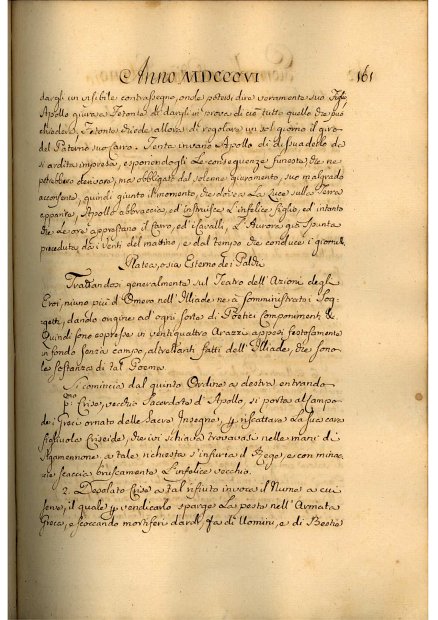 Anno MDCCCVI 161
dargli un visibile contrassegno, onde potersi dire veramente suo Figlio,
Apollo giura a Fetonte di dargli in prova di ciò tutto quello che può
chiedere, Fetonte chiede allora di regolare un sol giorno il giro
del Paterno suo Carro. Tenta invano Apollo di dissuaderlo da
sì ardita impresa, esponendogli Le conseguenze funeste che ne
potrebbero derivare, ma obbligato dal solenne giuramento, suo malgrado
acconsente, quindi giunto il momento, che dovea La Luce sulla Terra
apparire, Apollo abbraccia, ed instruisce L'infelice figlio, ed intanto
che Le ore apprestano il carro, ed i cavalli, L'Aurora già Spunta
preceduta dai Venti del mattino, e dal tempo che conduce i giorni.
Platea, osia Esterno dei Palchi
Trattandosi generalmente sul Teatro dell'Azioni degli
Eroi, niuno più d'Omero nell'Illiade ne à somministrati i Sog-
getti, dando origine ad ogni sorte di Poetici Componimenti.
Quindi sono espresse in ventiquattro Arazzi appesi festosamente
in fondo senza campo, altrettanti fatti dell'Illiade, che sono
le sostanza di tal Poema.
Si comincia dal quinto Ordine a destra entrando
p.mo Crise, vecchio Sacerdote d'Apollo, si porta al campo
de i Greci ornato delle Sacre Insegne, p riscattare La sua cara
figliuola Criseide, che ivi schiava trovavasi nelle mani di
Agamennone. a tale richiesta s'infuria il Rege, e con minac
cie scaccia bruscamente L'infelice vecchio.
2. Desolato Crise a tal rifiuto invoca il Nume a cui
serve, il quale p vendicarlo sparge La peste nell'Armata
Greca, e scoccando mortiferi dardi, fa di Uomini, e di Bestie